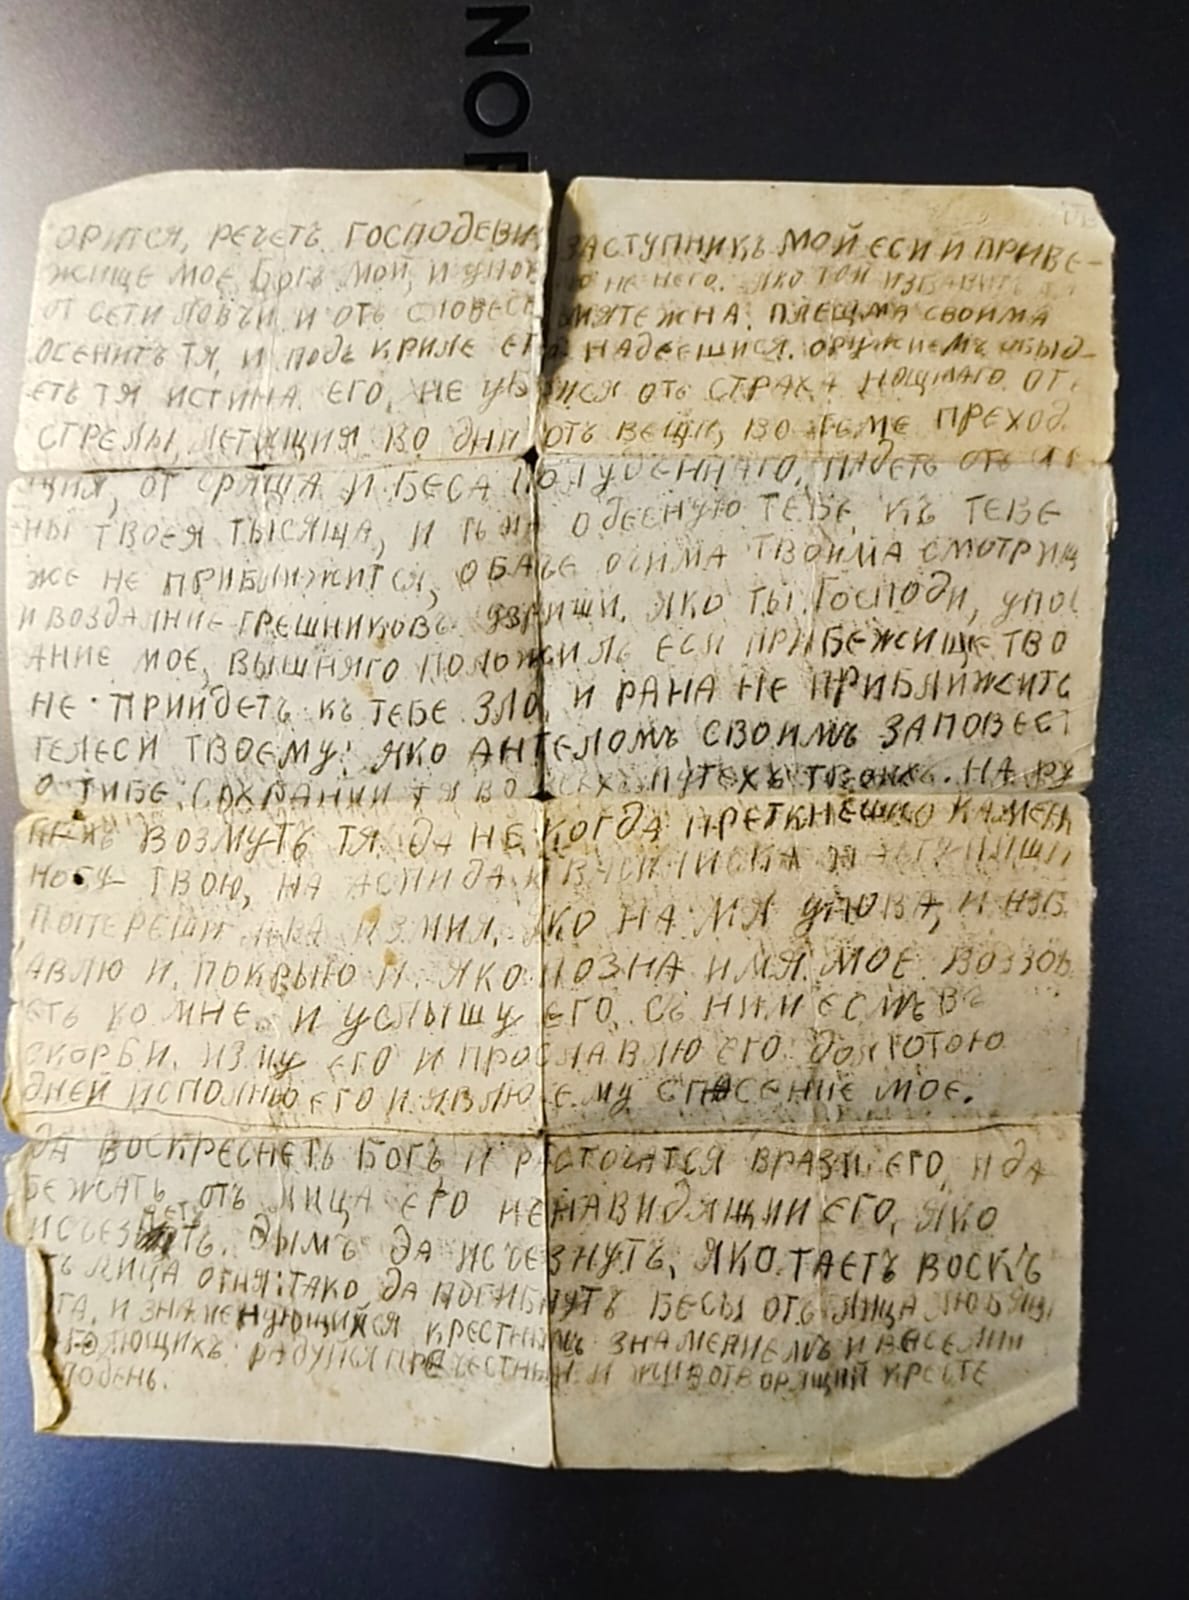 NOR
ОРИТСЯ, РЕЧЕТЪ ГОСПОДЕВИ, ЗАСТУПНИКЪ МОЙ ЕСИ И ПРИБЕ-
ЖИЩЕ МОЕ, БОГЪ МОЙ, И УПОВ Ю НЕ НЕГО. ЯКО ТОЙ ИЗБАВИТЪ
ОТ СЕТИ ЛОВЧИ И ОТЪ СЛОВЕСЕ МЯТЕЖНА. ПЛЕЩМА СВОИМА
ОСЕНИТЪ ТЯ, И ПОДЪ КРИЛЕ ЕГО НАДЕЕШИСЯ. ОРУЖИЕМЪ ОБЫД-
ЕТЬ ТЯ ИСТИНА ЕГО, НЕ УБ ИСЯ ОТЪ СТРАХА НОЩНАГО ОТ
СТРЕЛЫ, ЛЕТЯЩИЯ ВО ДНИ ОТЪ ВЕЩИ, ВО ТЕМЕ ПРЕХОД.
ЩИЯ, ОТ СРЯЩА И БЕСА ПОЛУДЕННАГО. ПАДЕТЬ ОТЪ
НЫ ТВОЕЯ ТЫСЯЩА, И ТЬМА ОДЕСНУЮ ТЕБЕ, КЪ ТЕБЕ
ЖЕ НЕ ПРИБЛИЖИТСЯ, ОБАЧЕ ОЧИМА ТВОИМА СМОТРИШ
И ВОЗДАЯНИЕ ГРЕШНИКОВЪ УЗРИШИ. ЯКО ТЫ ГОСПОДИ, УПОВ
АНИЕ МОЕ, ВЫШНЯГО ПОЛОЖИЛЪ ЕСИ ПРИБЕЖИЩЕ ТВО
НЕ ПРИЙДЕТЬ КЪ ТЕБЕ ЗЛО, И РАНА НЕ ПРИБЛИЖИТЬ
ТЕЛЕСИ ТВОЕМУ: ЯКО АНГЕЛОМЪ СВОИМЪ ЗАПОВЕСТ
О ТИБЕ, СОХРАНИТИ ТЯ ВО ВСЕХЪ ПУТЕХЪ ТВОИХЪ. НА РУ
ВОЗМУТЬ ТЯ ДА НЕ КОГДА ПРЕТКНЕШИ О КАМЕНЬ
НОГУ ТВОЮ, НА АСПИДА И ВАСИЛИСКА НАСТУПИШИ
ПОПЕРЕШИ ЛЬВА И ЗМИЯ. ЯКО НА МЯ УПОВА, И ИЗБ
АВЛЮ И, ПОКРЫЮ И. ЯКО ПОЗНА ИМЯ МОЕ. ВОЗЗОВ
ЕТЬ КО МНЕ, И УСЛЫШУ ЕГО, СЪ НИМ ЕСМЬ ВЪ
СКОРБИ. ИЗМУ ЕГО И ПРОСЛАВЛЮ ЕГО. ДОЛГОТОЮ
ДНЕЙ ИСПОЛНЮ ЕГО И ЯВЛЮ ЕМУ СПАСЕНИЕ МОЕ.
ДА ВОСКРЕСНЕТЬ БОГЪ И РАСТОЧАТСЯ ВРАЗИ ЕГО, И ДА
БЕЖАТЬ ОТЪ ЛИЦА ЕГО НЕНАВИДЯЩИИ ЕГО, ЯКО
ИСЧЕЗАЕТЬ ДЫМЪ ДА ИСЧЕЗНУТЬ, ЯКО ТАЕТЪ ВОСКЪ
ТЪ ЛИЦА ОГНЯ: ТАКО ДА ПОГИБНУТЪ БЕСЫ ОТЪ ЛИЦА ЛЮБЯЩ
ГА, И ЗНАМЕНУЮЩИХСЯ КРЕСТНЫМЪ ЗНАМЕНИЕМЪ И В ВЕСЕЛИИ
ГОЛЮЩИХЪ РАДУЙСЯ ПРЕЧЕСТНЫЙ И ЖИВОТВОРЯЩИЙ КРЕСТЕ
ПОДЕНЬ.